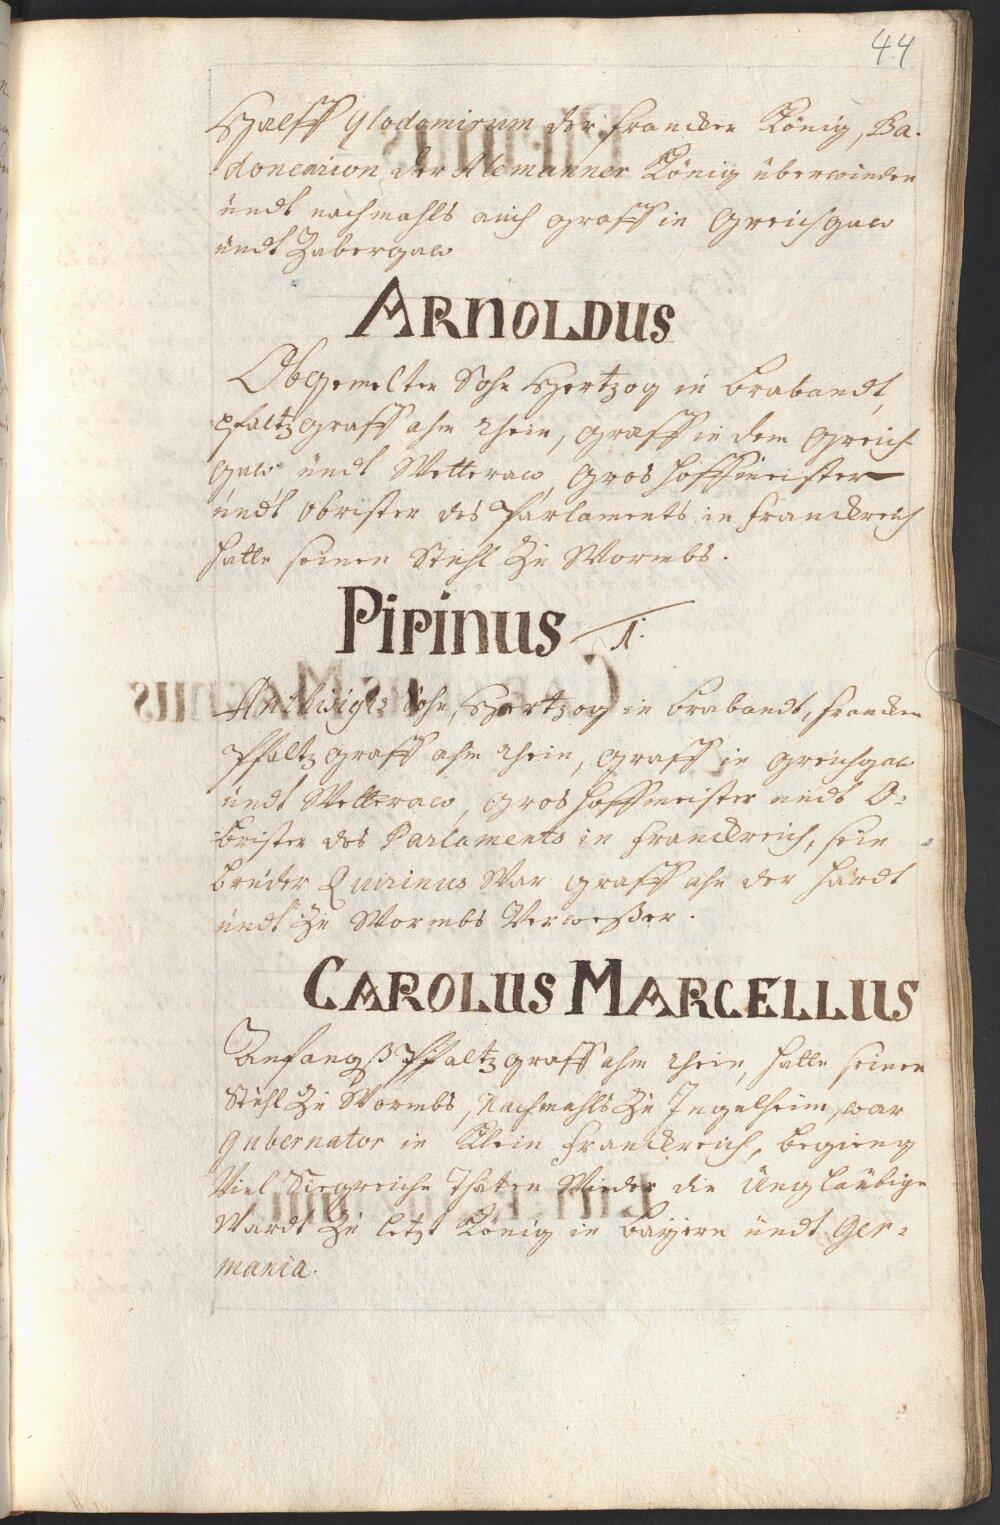 44
Halff Clodomirum der Francken König, Ba-
donearion der Alemanner König überwinden
undt nachmahls auch graff in Greichgaw
undt Zabergaw
ARNOLDUS
Obgemelter Sohn Hertzog in Brabandt,
Pfaltzgraff ahm Rhein, graff in dem Greich
gaw undt Wetteraw, Groshoffmeister
undt Obrister des Parlaments in Franckreich
hatte seinen Stuhl Zu Wormbs.
PIPINUS 1.
Sohn, Hertzog in Brabandt, Francken
Pfaltzgraff ahm Rhein, graff in Greichgaw
undt Wetteraw, Groshoffmeister undt O:
brister des Parlaments in Franckreich, sein
bruder Quirinus War graff ahn der Hardt
undt Zu Wormbs Verweßer.
CAROLUS MARCELLUS
Anfangß Pfaltzgraff ahm Rhein, hatte seinen
Stuhl Zu Wormbs, Nachmahls Zu Ingelheim, war
Gubernator in Klein Franckreich, begieng
Viel Siegreiche Thaten Wieder die Unglaübige
Wardt Zu letzt König in Bayern undt Ger=
mania.